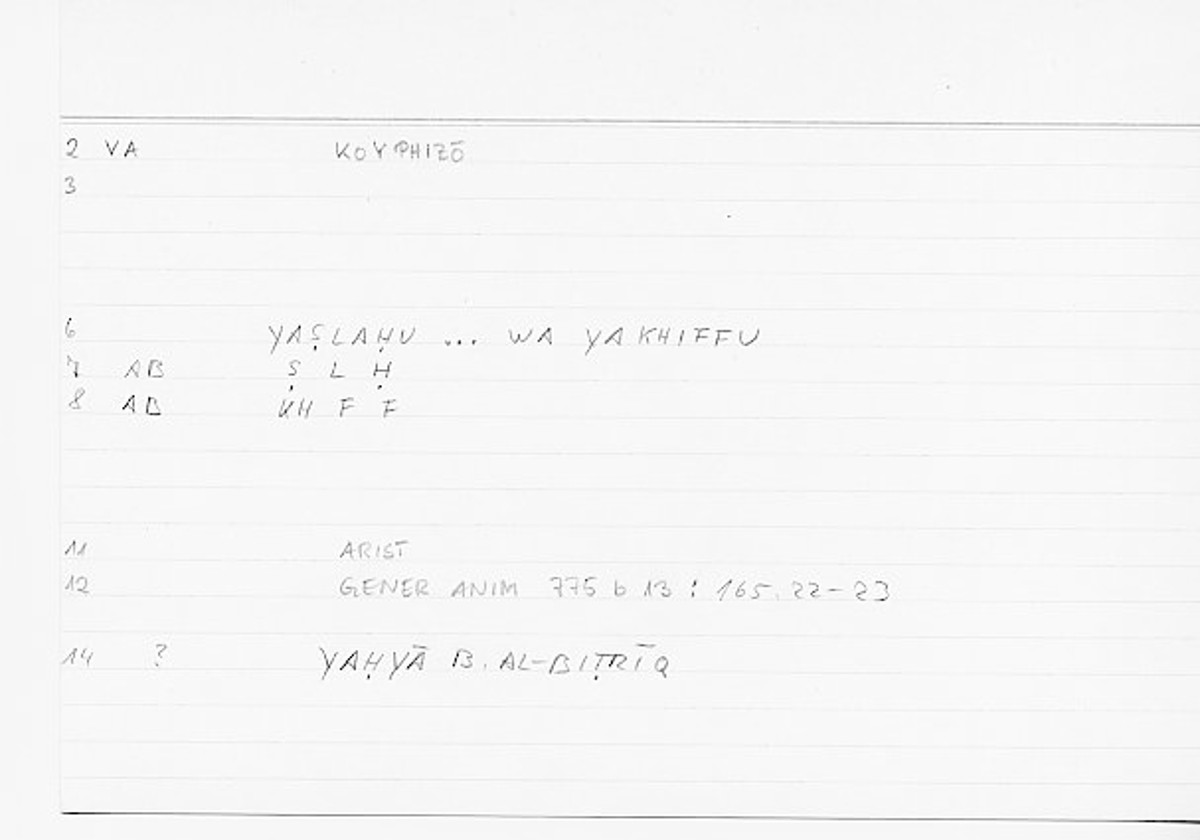 2 VA KOYPHIZŌ
3
6 YAṢLAḤU ... WA YAKHIFFU
7 AB Ṣ L Ḥ
8 AB KH F F
11 ARIST
12 GENER ANIM 775 b 13 : 165.22-23
14 ? YAḤYĀ B. AL-BIṬRĪQ